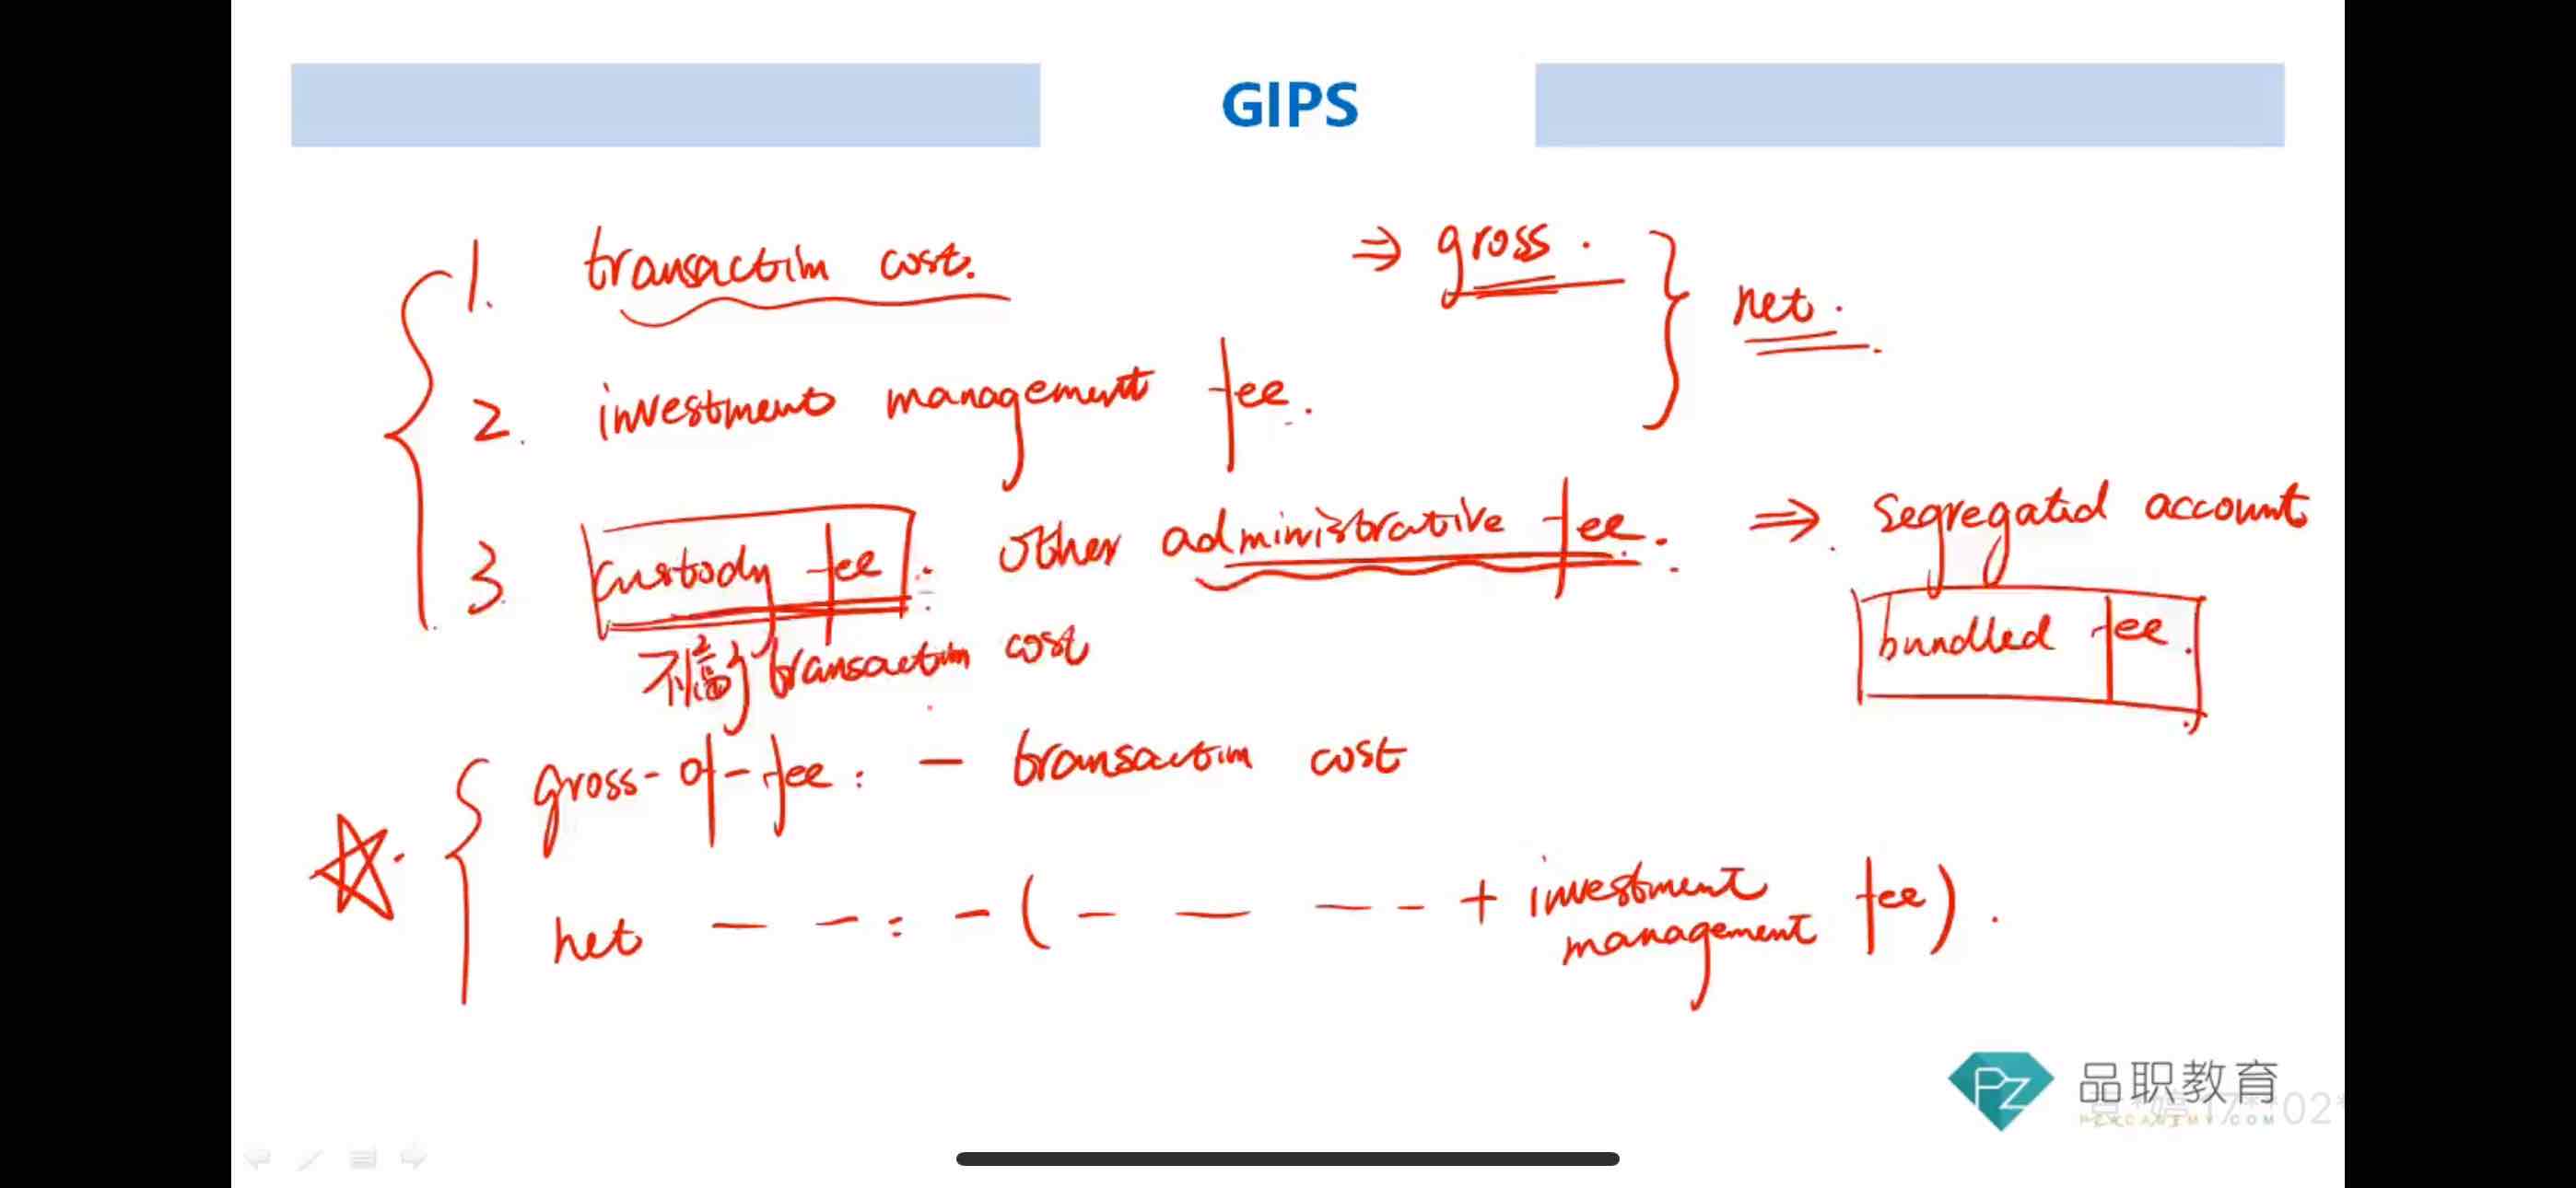 GIPS
1. transaction cost. ⇒ gross.
net.
2. investment management fee.
3. custody fee. other administrative fee. ⇒ segregated account
bundled fee.
不属于 transaction cost
gross-of-fee: - transaction cost
net — — : - (— — — - + investment management fee).
PZ 品职教育